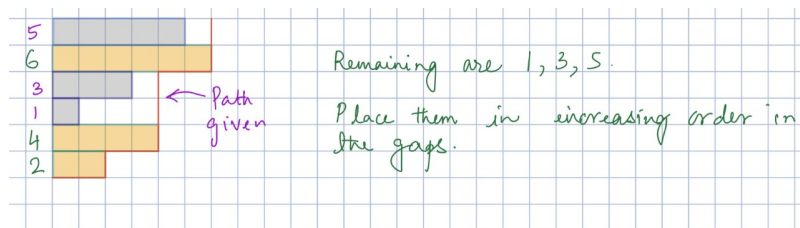 5
6
3
1
4
2
Path
given
Remaining are 1, 3, 5.
Place them in increasing order in
the gaps.